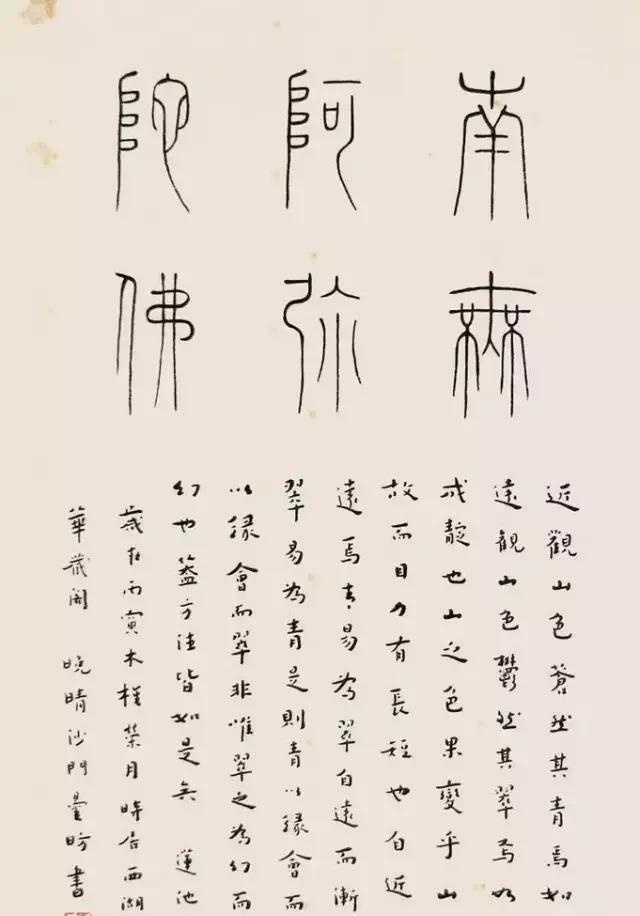 南無
阿弥
陀佛
近觀山色蒼然其青焉如
遠觀山色鬱然其翠焉如
成靛也山之色果變乎山
故而目力有長短也自近
遠焉青易為翠自遠而漸
翠易為青是則青以緣會而
以緣會而翠非唯翠之為幻而
幻也蓋万法皆如是矣 蓮池
歲在丙寅木槿榮月時居西湖
華嚴閣 晚晴沙門曇昉書